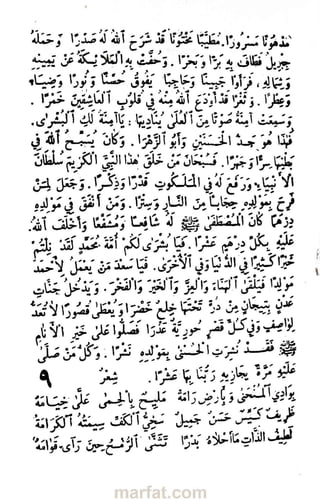 مَدْهُونًا مَسْرُورًا. مُطَيَّبًا مَخْتُونًا قَدْ شَرَحَ اللهُ لَهُ صَدْرًا وَحَمَلَهُ
جِبْرِيلُ فَطَافَ بِهِ بَرًّا وَبَحْرًا. وَحُفَّتْ بِهِ الْمَلَآئِكَةُ عَنْ يَمِينِهِ
وَشِمَالِهِ. فَرَأَوْا جَبِينًا وَحَاجِبًا يَفُوقُ حُسْنًا وَنُورًا وَضِيَاءً
وَعِطْرًا. وَثَغْرًا قَدْ أَوْدَعَ اللهُ مِنْهُ فِي قُلُوبِ الْعَاشِقِينَ خَمْرًا.
وَسَمِعَتْ آمِنَةُ صَوْتًا مِنَ الْعُلَى يُنَادِيهَا: يَاآمِنَةُ لَكِ الْبُشْرَى.
فَهٰذَا هُوَ جَدُّ الْحَسَنَيْنِ وَأَبُو الزَّهْرَا. وَكَانَ يُسَبِّحُ اللهَ فِي
بَطْنِهَا سِرًّا وَجَهْرًا. فَسُبْحَانَ مَنْ خَلَقَ هٰذَا النَّبِيَّ الْكَرِيمَ سُلْطَانَ
الْأَنْبِيَاءِ، وَرَفَعَ لَهُ فِي الْمَلَكُوتِ قَدْرًا وَذِكْرًا. وَجَعَلَ لِمَنْ
فَرِحَ بِمَوْلِدِهِ حِجَابًا مِنَ النَّارِ وَسِتْرًا. وَمَنْ أَنْفَقَ فِي مَوْلِدِهِ
دِرْهَمًا كَانَ الْمُصْطَفَى ﷺ لَهُ شَافِعًا وَمُشَفَّعًا وَأَخْلَفَ اللهُ
عَلَيْهِ بِكُلِّ دِرْهَمٍ عَشْرًا. فَيَا بُشْرَى لَكُمْ أُمَّةَ مُحَمَّدٍ لَقَدْ نِلْتُمْ
خَيْرًا كَثِيرًا فِي الدُّنْيَا وَفِي الْأُخْرَى. فَيَا سَعْدَ مَنْ يَعْمَلُ لِأَحْمَدَ
مَوْلِدًا فَيَلْقَى الْهَنَاءَ وَالْعِزَّ وَالْخَيْرَ وَالْفَخْرَ. وَيَدْخُلُ جَنَّاتِ
عَدْنٍ بِتِيجَانٍ مِنْ دُرٍّ تَحْتَهَا خِلَعٌ خَضْرَا وَيُعْطَى قُصُورًا لَا تُعَدُّ
لِوَاصِفٍ وَفِي كُلِّ قَصْرٍ حُورِيَّةٌ عَذْرَا فَصَلُّوا عَلَى خَيْرِ الْأَنَامِ
ﷺ فَقَدْ نُشِرَتِ الْحُسْنَى بِمَوْلِدِهِ نَشْرًا. وَكُلُّ مَنْ صَلَّى
عَلَيْهِ مَرَّةً يُجَازِيهِ رَبُّنَا بِهَا عَشْرًا. شِعْرٌ ٩
بِوَادِي الْمُنْحَنَى وَبِأَرْضِ رَامَهْ مَلِيحٌ بِالْحِمَى عَلَّى خِيَامَهْ
ظَرِيفٌ كَيِّسٌ حَسَنٌ جَمِيلٌ سَخِيُّ الْكَفِّ سِيمَتُهُ الْكَرَامَهْ
لَطِيفُ الذَّاتِ مَا أَحْلَاهُ بَدْرًا تَثَنَّى الرُّمْحُ حِينَ رَآى قَوَامَهْ
marfat.com